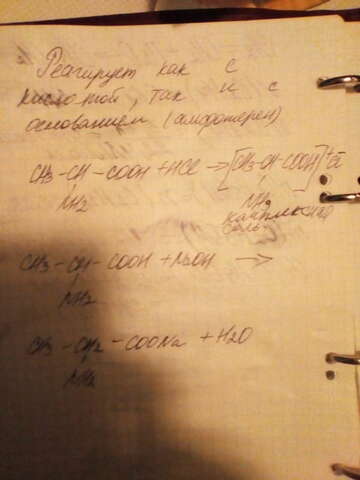 Реагирует как с
кислотой, так и с
основанием (амфотерен)
CH3-CH-COOH + HCl → [CH3-CH-COOH]+Cl
NH2 NH3
соль
CH3-CH-COOH + NaOH →
NH2
CH3-CH2-COONa + H2O
NH2